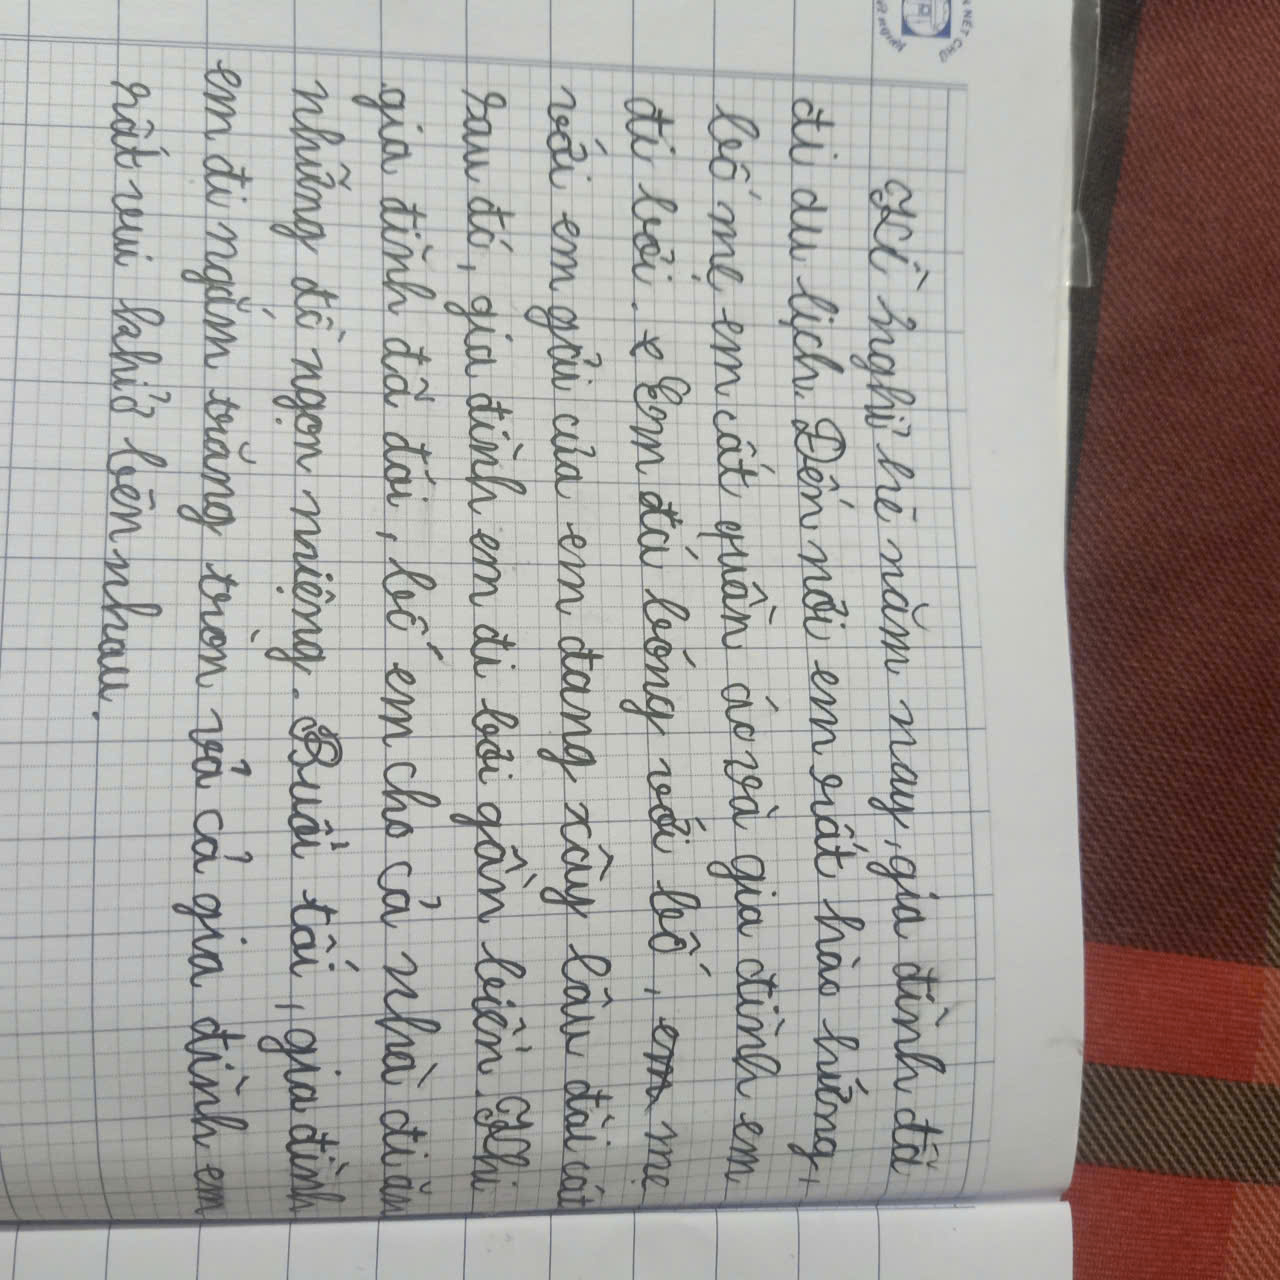 Kì nghỉ hè năm nay, gia đình đã
đi du lịch. Đến nơi em rất hào hứng,
bố mẹ em cất quần áo và gia đình em
đi bơi. e Em đá bóng với bố, em mẹ
với em gái của em đang xây lâu đài cát
sau đó, gia đình em đi bơi gần biển. Khi
gia đình đã đói, bố em cho cả nhà đi ăn
những đồ ngọn miệng. Buổi tối, gia đình
em đi ngắm trăng tròn và cả gia đình em
rất vui khi ở bên nhau.
NÉT CHỮ